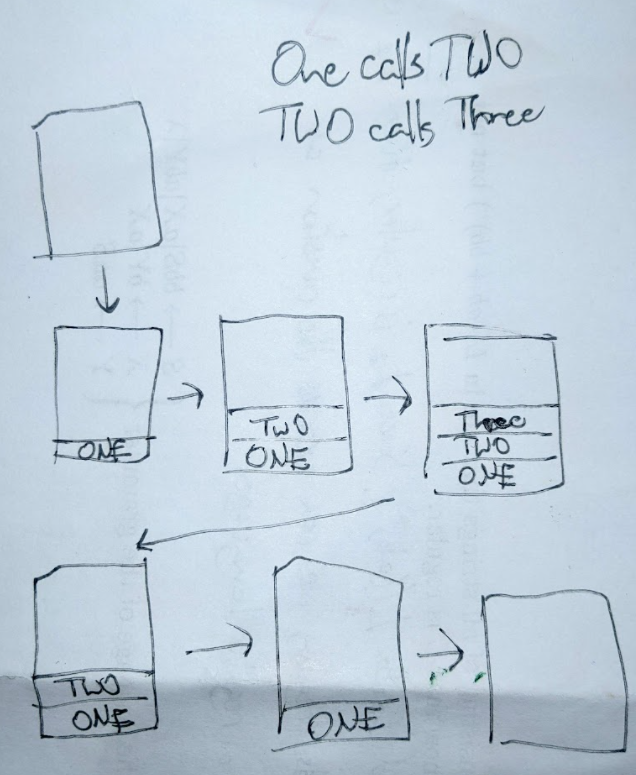 One calls TWO
TWO calls Three
ONE
TWO
ONE
Three
TWO
ONE
TWO
ONE
ONE